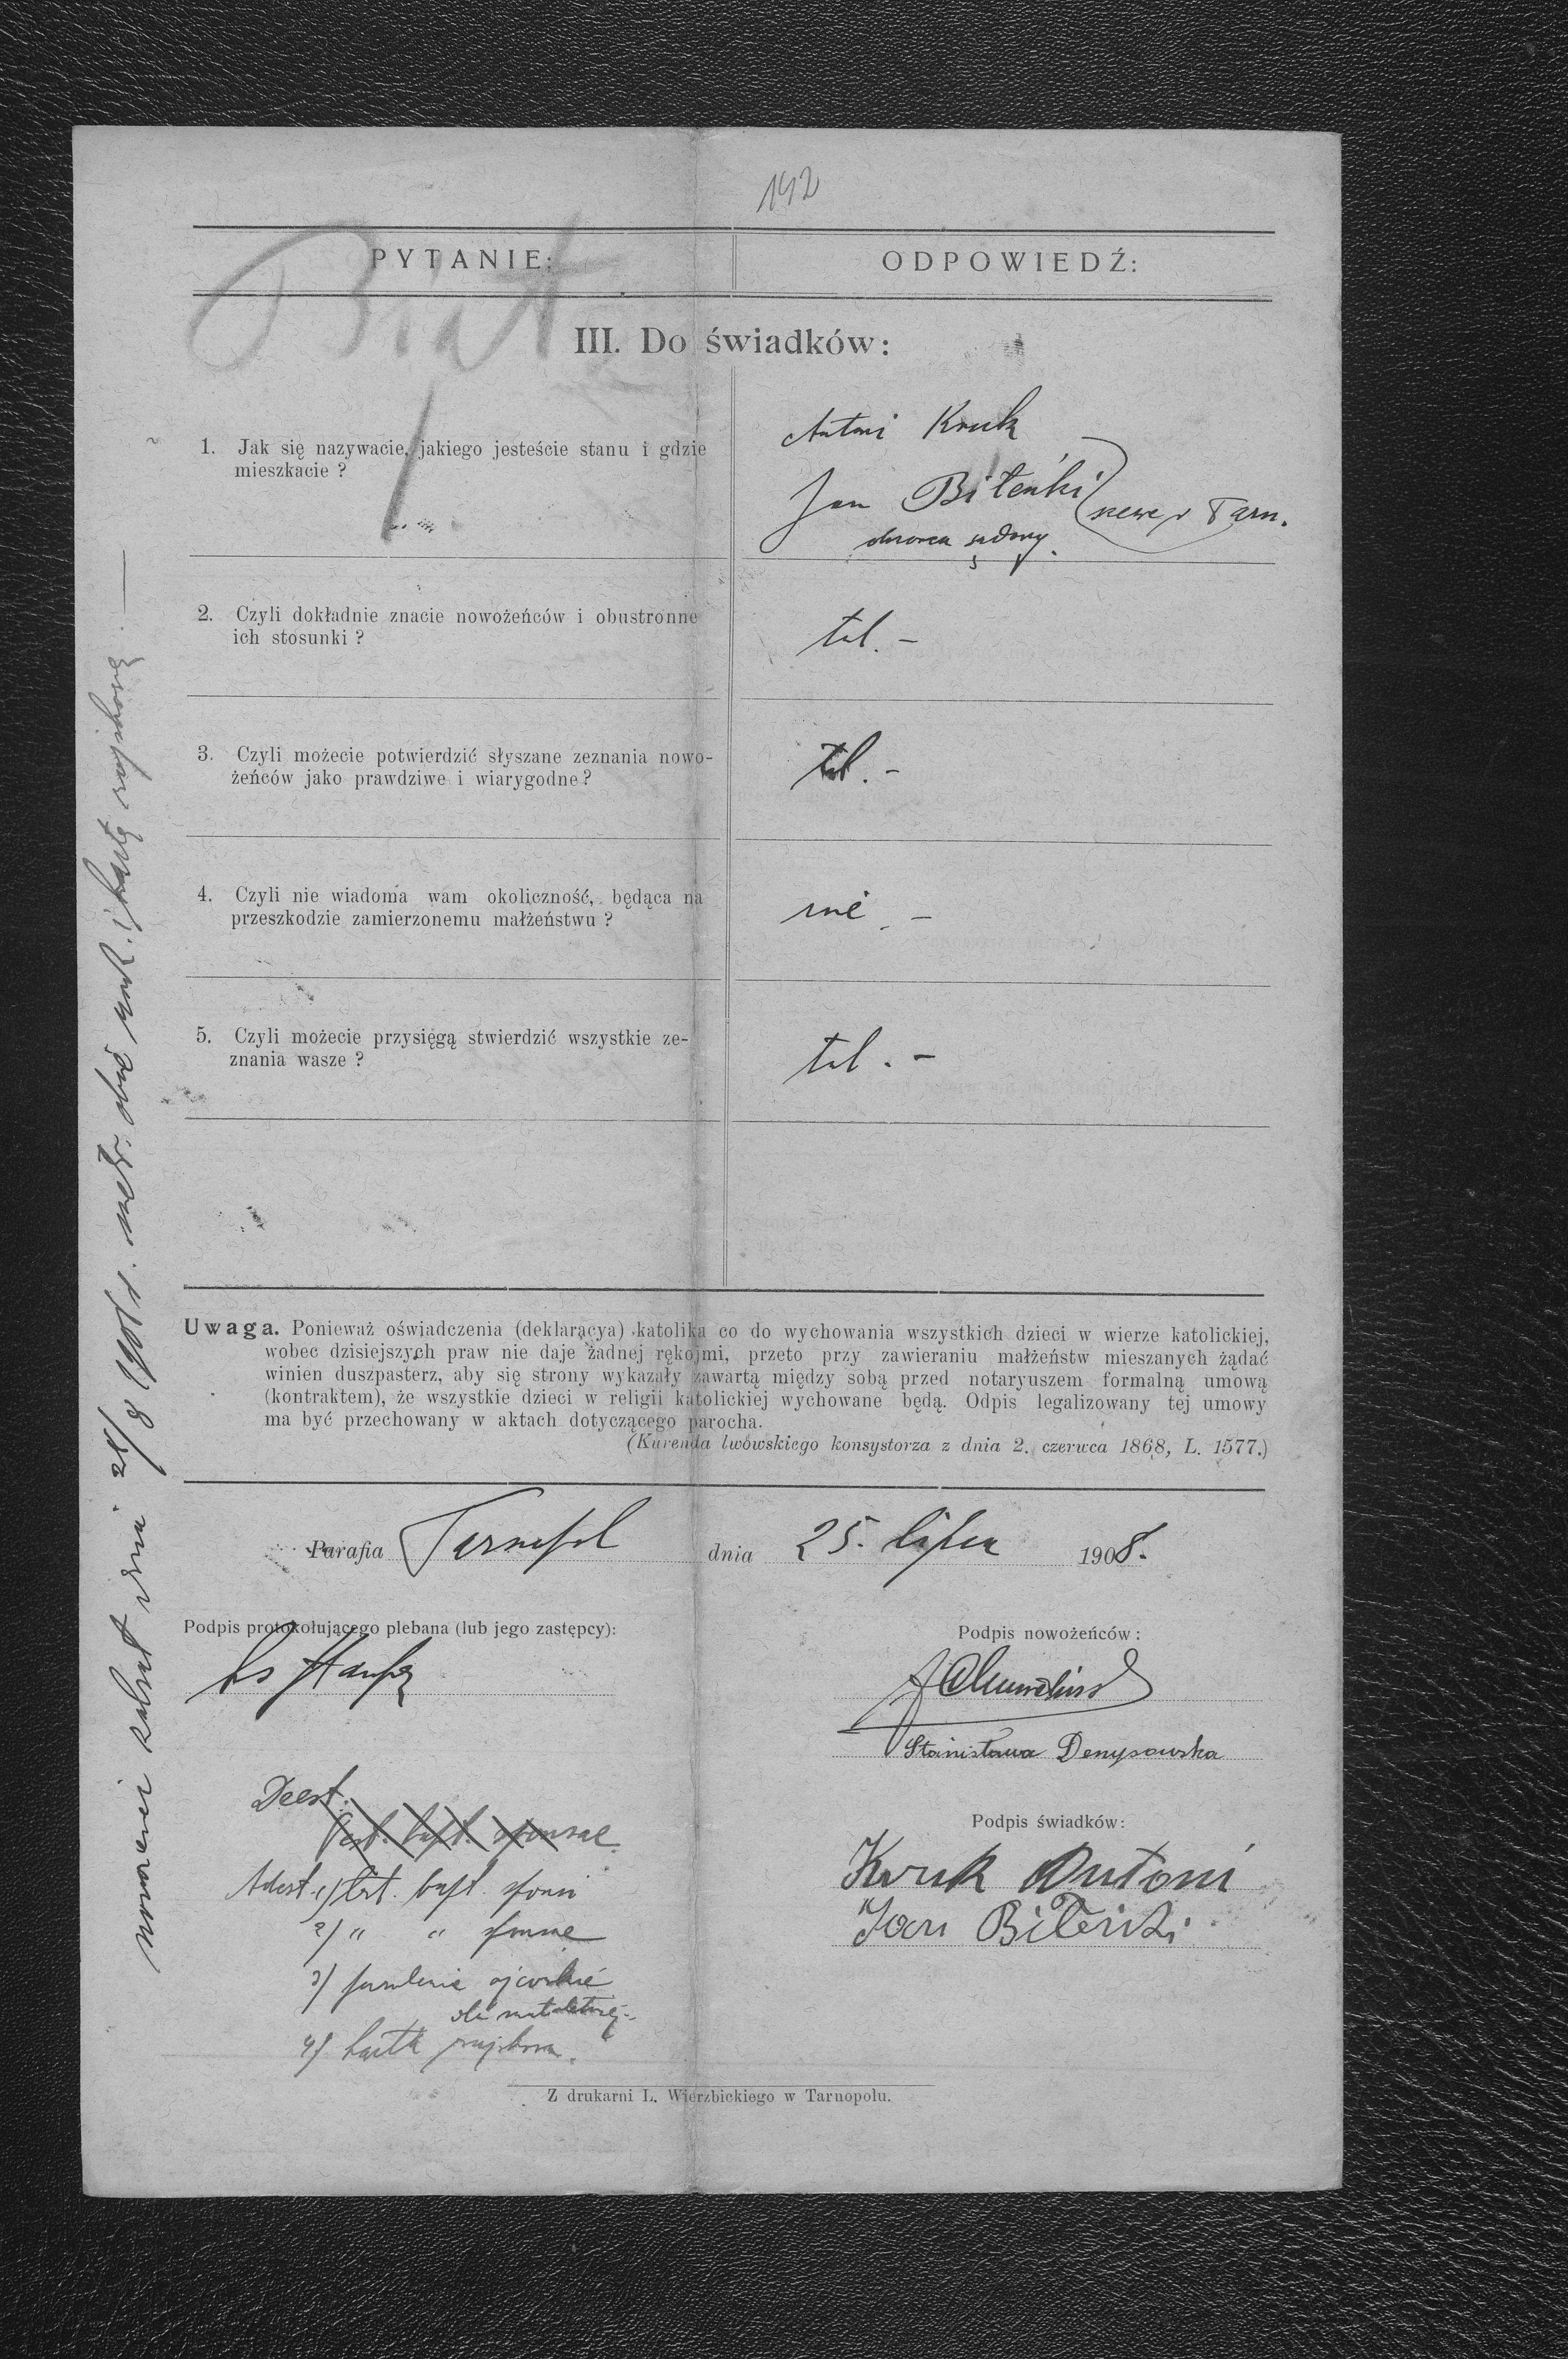 142
PYTANIE:
ODPOWIEDŹ:
III. Do świadków:
1. Jak się nazywacie, jakiego jesteście stanu i gdzie
mieszkacie ?
Antoni Kruk
Jan Bileńki
sądowy.
Tarn.
2. Czyli dokładnie znacie nowożeńców i obustronne
ich stosunki ?
tak. –
3. Czyli możecie potwierdzić słyszane zeznania nowo-
żeńców jako prawdziwe i wiarygodne?
tak. –
4. Czyli nie wiadoma wam okoliczność, będąca na
przeszkodzie zamierzonemu małżeństwu ?
nie. –
5. Czyli możecie przysięgą stwierdzić wszystkie ze-
znania wasze ?
tak. –
Uwaga. Ponieważ oświadczenia (deklaracya) katolika co do wychowania wszystkich dzieci w wierze katolickiej,
wobec dzisiejszych praw nie daje żadnej rękojmi, przeto przy zawieraniu małżeństw mieszanych żądać
winien duszpasterz, aby się strony wykazały zawartą między sobą przed notaryuszem formalną umową
(kontraktem), że wszystkie dzieci w religii katolickiej wychowane będą. Odpis legalizowany tej umowy
ma być przechowany w aktach dotyczącego parocha.
(Kurenda lwowskiego konsystorza z dnia 2. czerwca 1868, L. 1577.)
Parafia Tarnopol dnia 25. lipca 1908.
Podpis protokołującego plebana (lub jego zastępcy):
Podpis nowożeńców:
Stanisława Denysowska
Deest:
bapt. sponsae
Podpis świadków:
Kruk Antoni
Jan Bileński
Adest 1) Test. bapt. sponsi
2) " " sponsae
3) ojcowskie
dla małoletniej
4) karta
Z drukarni L. Wierzbickiego w Tarnopolu.